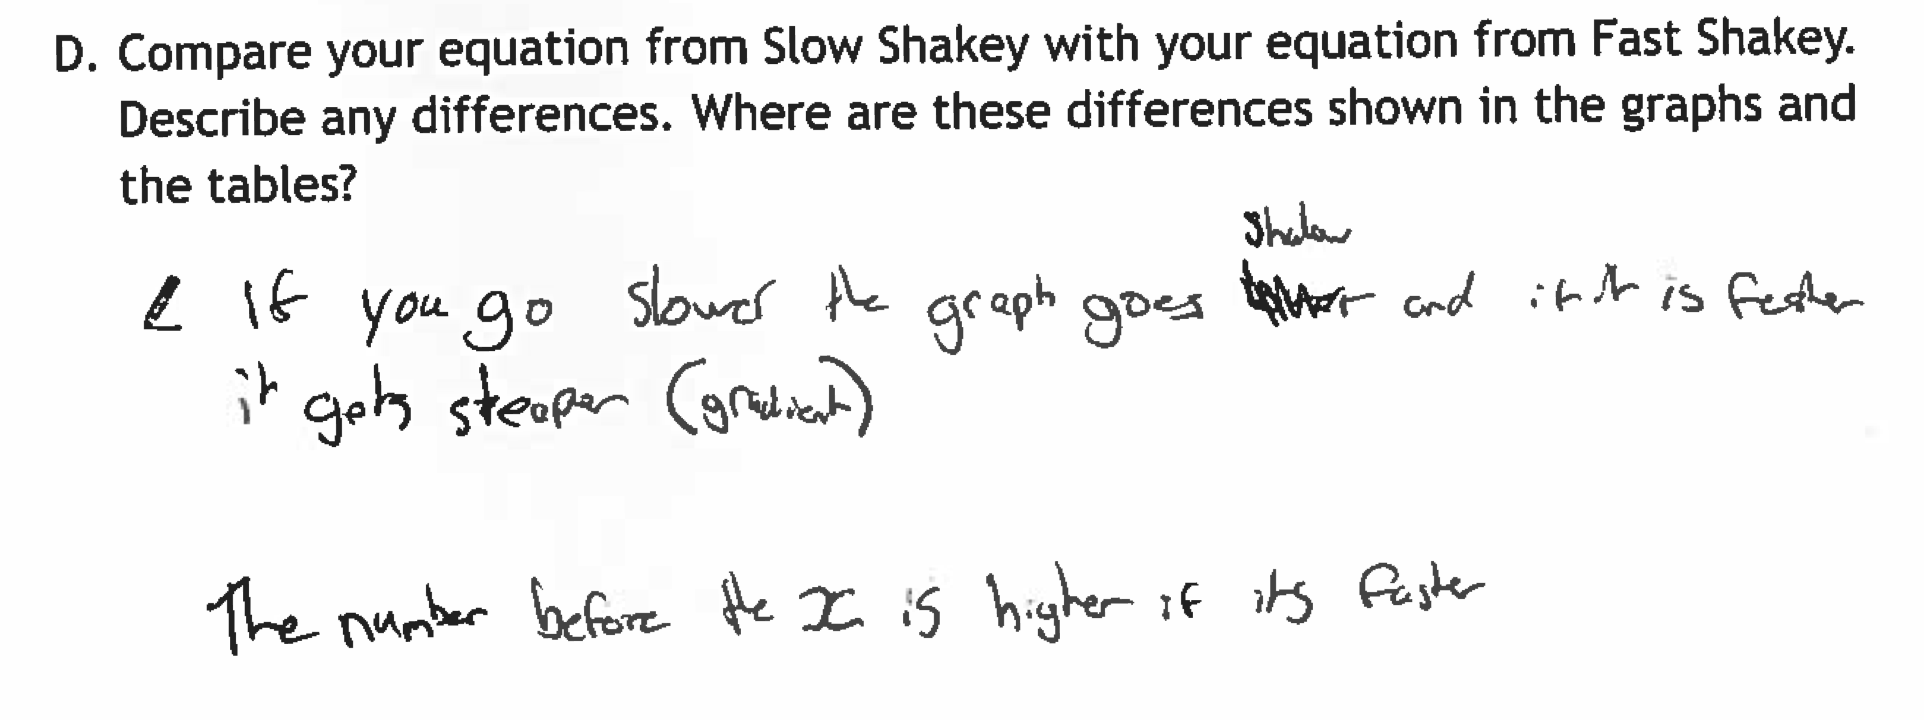 D. Compare your equation from Slow Shakey with your equation from Fast Shakey.
Describe any differences. Where are these differences shown in the graphs and
the tables?
Shalow
If you go slower the graph goes and if it is faster
it gets steeper (gradient)
The number before the x is higher if its faster